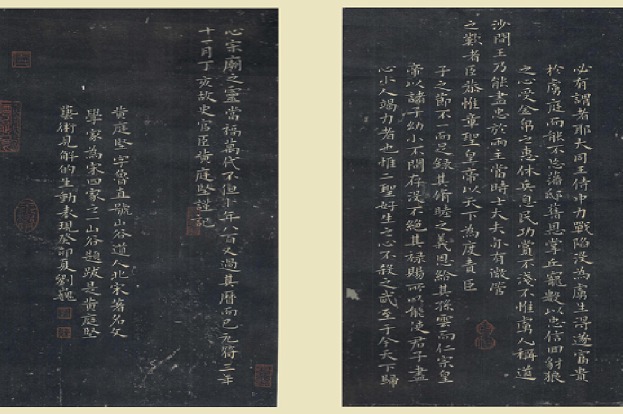 必有謂者耶大同王侍中力戰陷沒為虜生得遂富貴
於虜庭而能不忘藩邸舊恩掌丘寵數以忠信回豺狼
之心受金帛之惠休兵息民功賞不淺不惟虜人稱道
沙間王乃能盡忠於兩主當時士大夫亦有微管
之歎者臣恭惟章聖皇帝以天下為度責臣
子之節不一而足錄其脩睦之義恩給其孫雲而仁宗皇
帝以諸子幼小不問存沒不絕其祿賜所以能使君子盡
心小人竭力者也惟二聖好生之心不殺之武至于今天下歸
心宗廟之靈當福萬代不但卜年八百又過其曆而已元符三年
十一月丁亥故史官臣黃庭堅謹記
黃庭堅字魯直號山谷道人北宋著名文
學家為宋四家之一山谷題跋是黃庭堅
藝術見解的生動表現癸卯夏劉巍